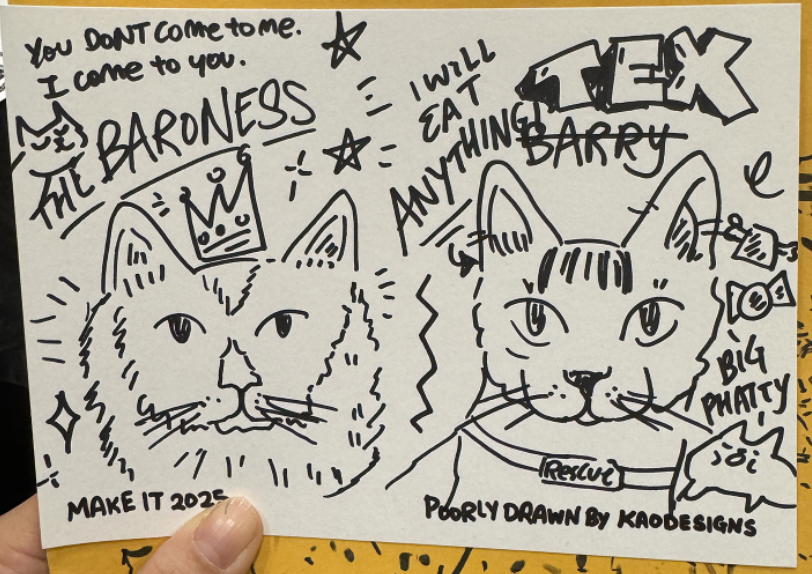 You DON'T Come to me.
I come to you.
THE BARONESS
MAKE IT 2025
I WILL
EAT
ANYTHING!
TEX
BARRY
BIG
PHATTY
Rescue
POORLY DRAWN BY KAODESIGNS